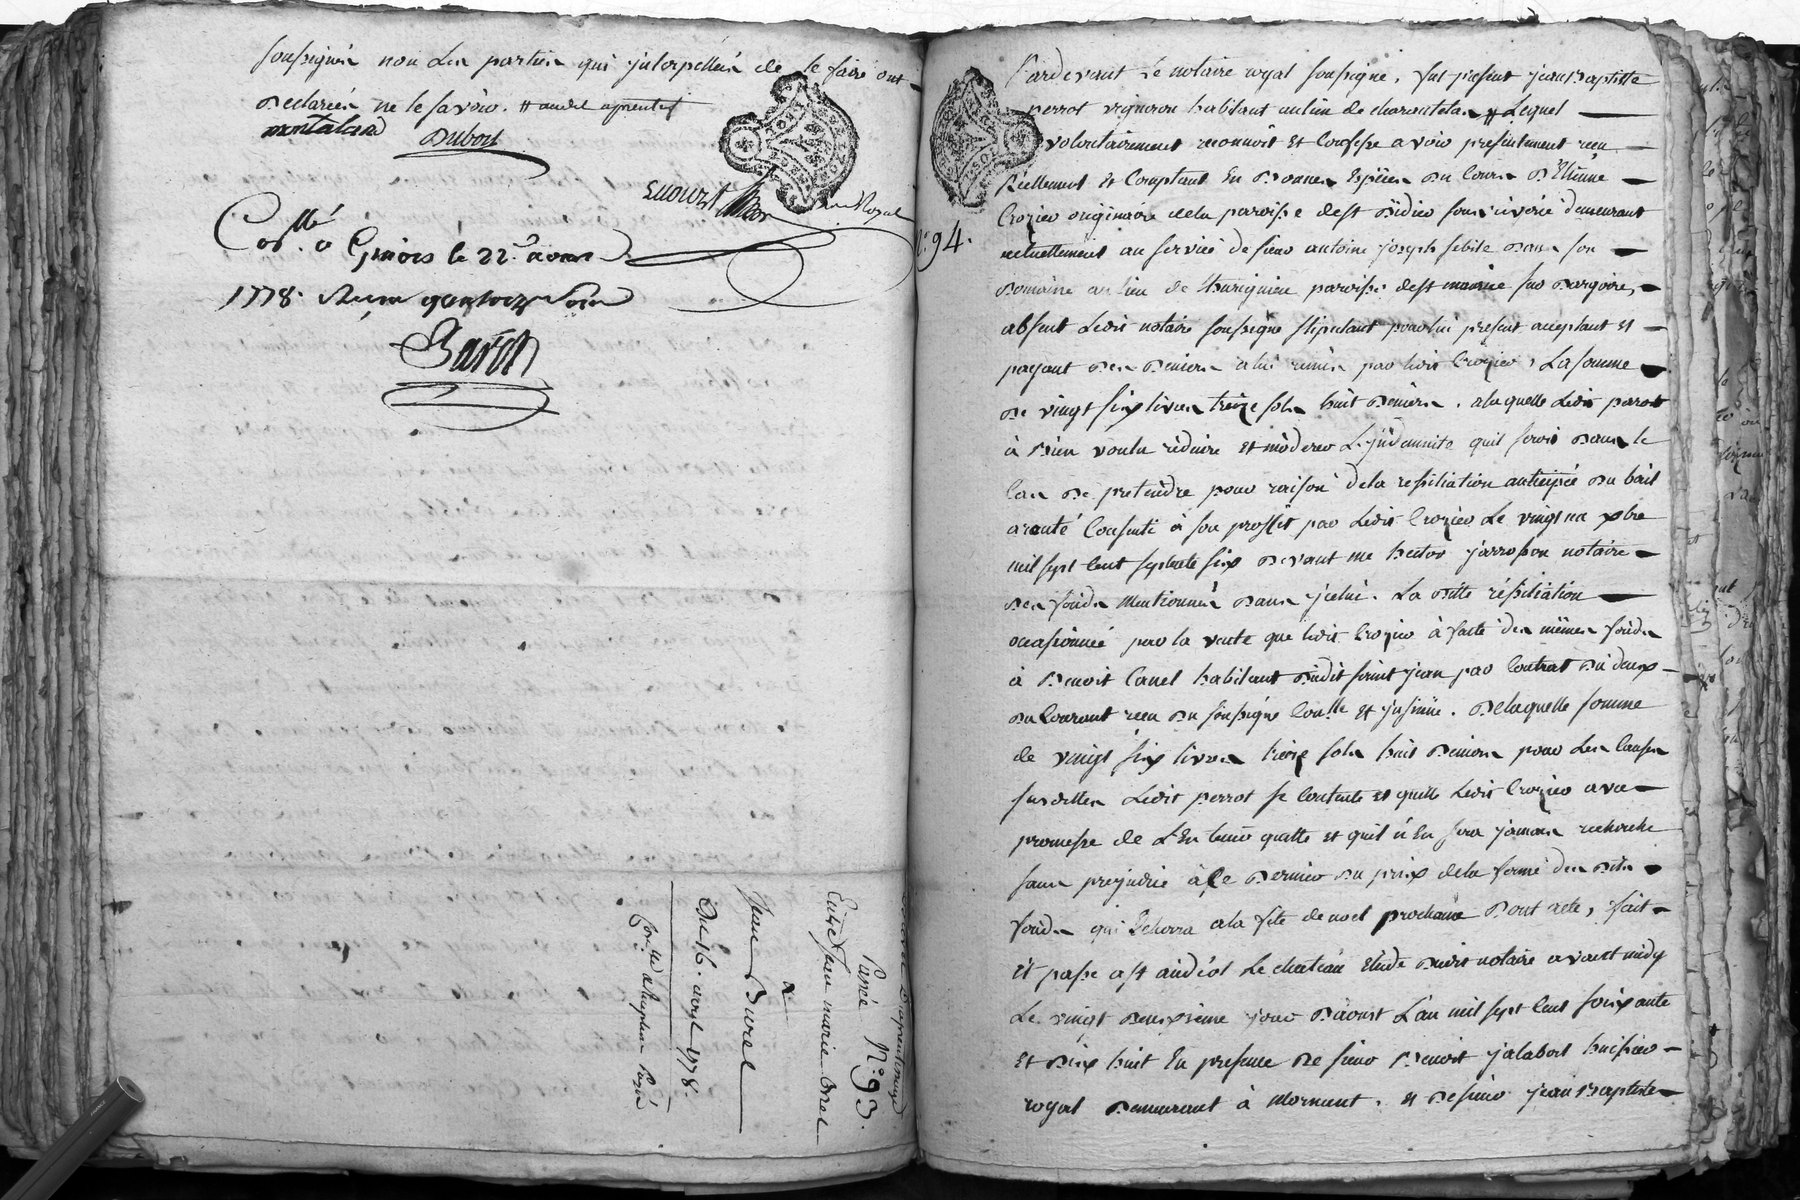 soussignés non les parties qui interpellées de le faire ont
declarées ne le savoir. # andré aprentif
montaland
Dubost
Enouvst Royal
Coll.é à Givors le 22.e aoust
1778. Recu quatorze sols
Baron
Quittance d'aprentissage
Passée N.o 93.
Entre Jean marie Orel
&
Jean Burel
Du 16. aoust 1778.
Con.llé & Expedition Payé
N.o 94.
Pardevant Le notaire royal soussigné, fut present jean Baptiste
perrot vigneron habitant au lieu de charentelas # Lequel
volontairement reconnoit Et Confesse avoir presentement reçu
Réellement Et Comptant En Bonnes Espèces du Cours D'Etienne
Crozier originaire de la paroisse de st Didier sous riverie demeurant
actuellement au service de sieur antoine joseph sibile Dans son
Domaine au lieu de thurigneu paroisse de st maurice sur Dargoire,
absent Ledit notaire soussigné stipulant pour lui present acceptant et
payant Des Deniers a lui remis par ledit Crozier, La somme
De vingt six livres treize sols huit Deniers. a laquelle Ledit perrot
à Bien voulu réduire Et modérer L'jndemnité quil seroit Dans le
Cas De pretendre pour raison de la resiliation anticipée du bail
à ferme Consenti à son proffit par Ledit Crozier Le vingt un xbre
mil sept Cent septente six Devant me hector jarrosson notaire
Des fonds Mentionnés Dans jcelui. La Ditte résiliation
occasionnée par la vente que ledit Crozier à faite des mêmes fonds
à Benoit Canel habitant dudit saint jean par Contrat du deux
du Courant reçu du soussigné Con.llé Et jnsinué. De laquelle somme
de vingt six livres treize sols huit Deniers pour Les Causes
susdittes Ledit perrot se Contente et quitte Ledit Crozier avec
promesse de L'En tenir quitte et quil n'En sera jamais recherché
sans prejudice à Ce Dernier du prix de la ferme des Dits
fonds qui Echerra a la fête de noel prochaine Dont acte, fait
Et passé a st andéol Le chateau Etude Dudit notaire avant midy
Le vingt Deuxieme jour D'aoust L'an mil sept Cent soixante
Et Dix huit En presence De sieur Benoit jalabert huissier
royal Demeurant à Mornant. et De sieur jean Baptiste